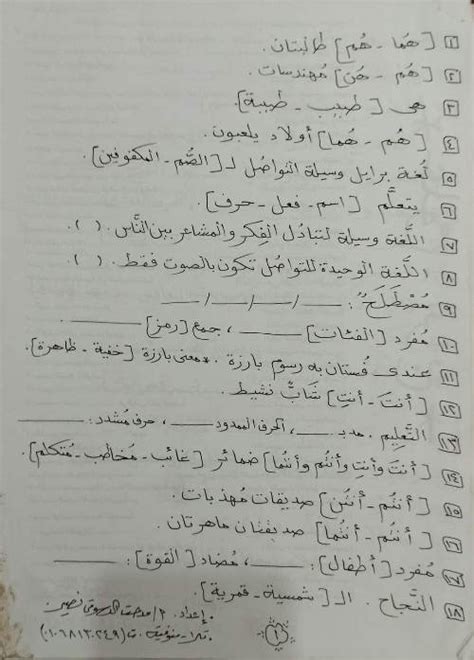 ١ [هُما - هُم] طالبتان.
٢ [هُم - هُنَّ] مُهندسات.
٣ هى [طبيب - طبيبة].
٤ [هُم - هُما] أولاد يلعبون.
٥ لُغة برايل وسيلة التواصُل لـ [الصُّم - المكفوفين].
٦ يتعلَّم [اسم - فعل - حرف].
٧ اللُّغة وسيلة لتبادُل الفِكر والمشاعر بين النَّاس. ( )
٨ اللُّغة الوحيدة للتواصُل تكون بالصوت فقط. ( )
٩ مُصْطَلَحٌ: ___/___/___/___
١٠ مُفرد [الفئات] ______، جمع [رمز] ______
١١ عندى فُستان به رسوم بارزة. * معنى بارزة [خفية - ظاهرة].
١٢ [أنتَ - أنتِ] شَابٌّ نشيط.
١٣ التَّعليم. مد بـ ____، الحرف الممدود ____، حرف مُشدد: ____
١٤ [أنتَ وأنتِ وأنتُم وأنتُما] ضمائر [غائب - مُخاطَب - مُتكلم].
١٥ [أنتُم - أنتُنَّ] صديقات مُهذبات.
١٦ [أنتُم - أنتُما] صديقتان ماهرتان.
١٧ مُفرد [أطفال]: ____، مُضاد [القوة]: ____
١٨ النَّجاح. الـ [شمسية - قمرية].
إعداد. أ/
١